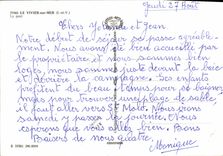 Jeudi 27 Août
7765. LE VIVIER-sur-MER (I.-et-V.)
Chers Yolande et Jean
Notre début de séjour se passe agréable-
ment. Nous avons été bien accueillis par
le propriétaire et nous sommes bien
logés, nous sommes tout près devant la baie
et derrière la campagne. Les enfants
profitent du beau temps pour se baigner
mais pour trouver une plage de sable,
il faut aller vers St Malo. Nous irons
samedi y passer la journée. Nous
espérons que vous allez bien. Bons
Baisers de nous quatre.
Monique